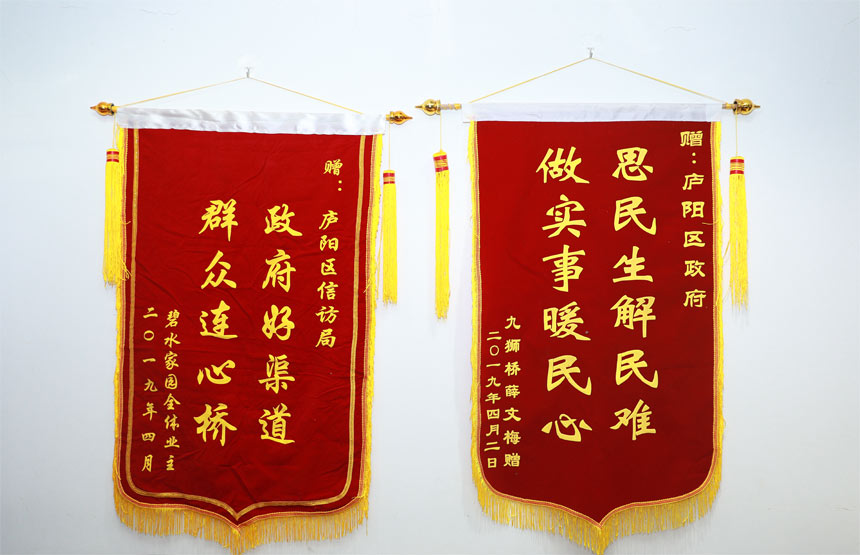 赠：庐阳区信访局
政府好渠道
群众连心桥
碧水家园全体业主
二〇一九年四月
赠：庐阳区政府
思民生解民难
做实事暖民心
九狮桥薛文梅赠
二〇一九年四月二日